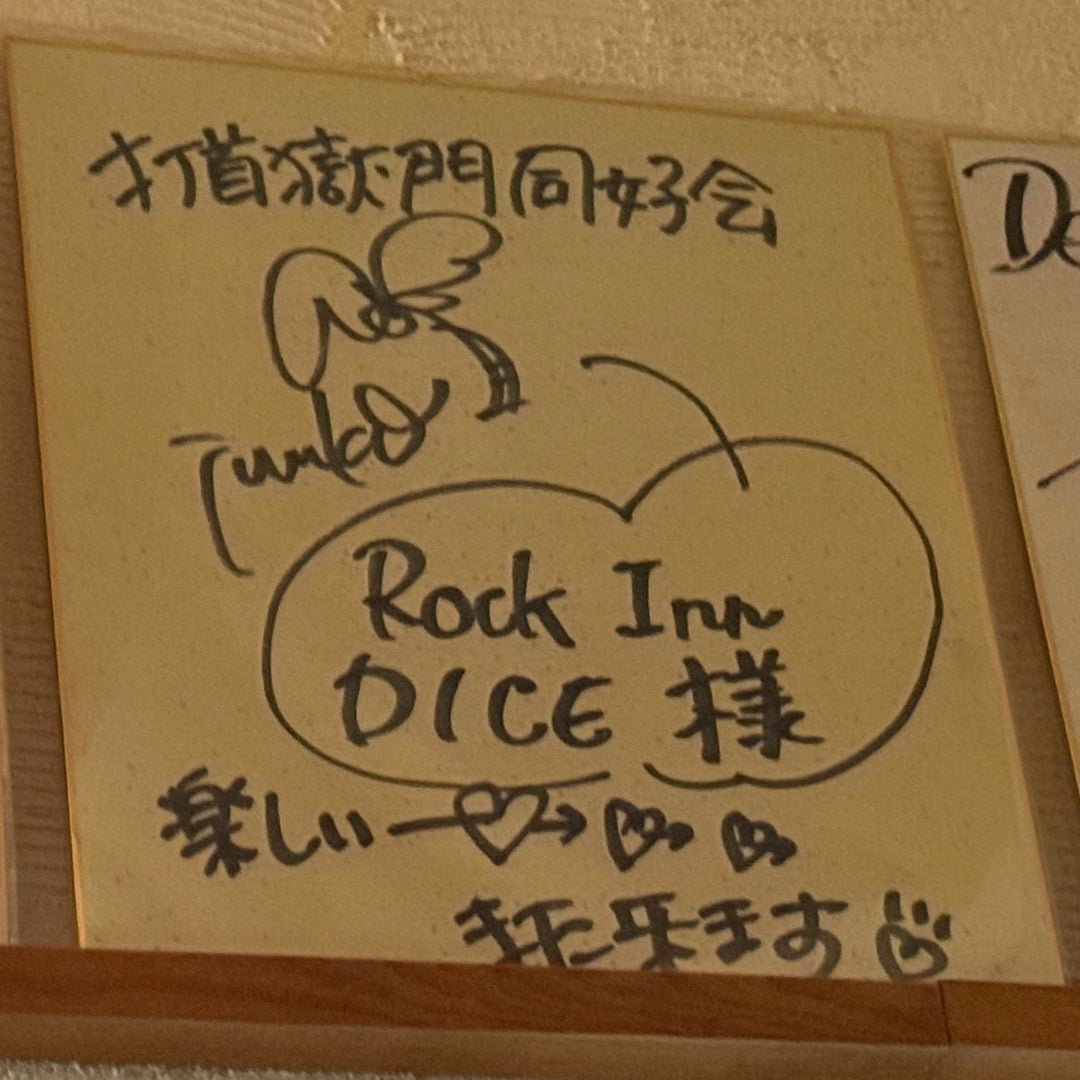 打首獄門同好会
Junko
Rock Inn
DICE 様
楽しい
また来ます
De